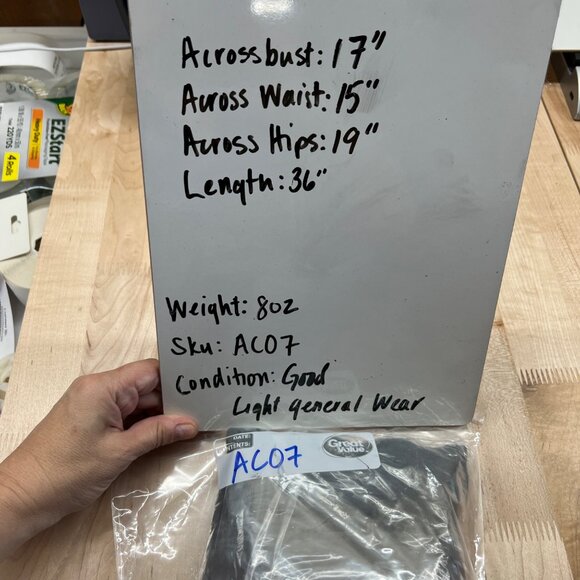 Across bust: 17"
Across Waist: 15"
Across Hips: 19"
Length: 36"
Weight: 8oz
Sku: AC07
Condition: Good
Light general Wear
DATE:
CONTENTS:
Great Value
AC07
EZStart
Heavy Duty
220YDS
4 Rolls